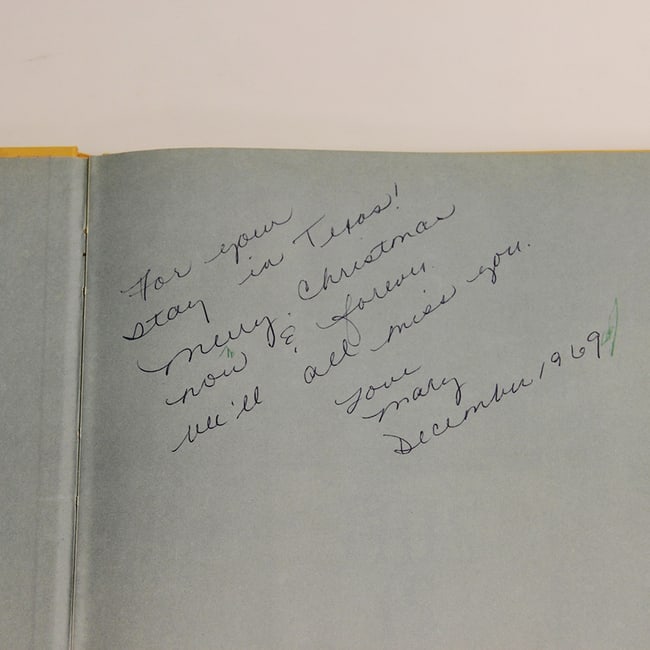 For your
stay in Texas!
Merry Christmas
now & forever.
We'll all miss you.
Love
Mary
December 1969